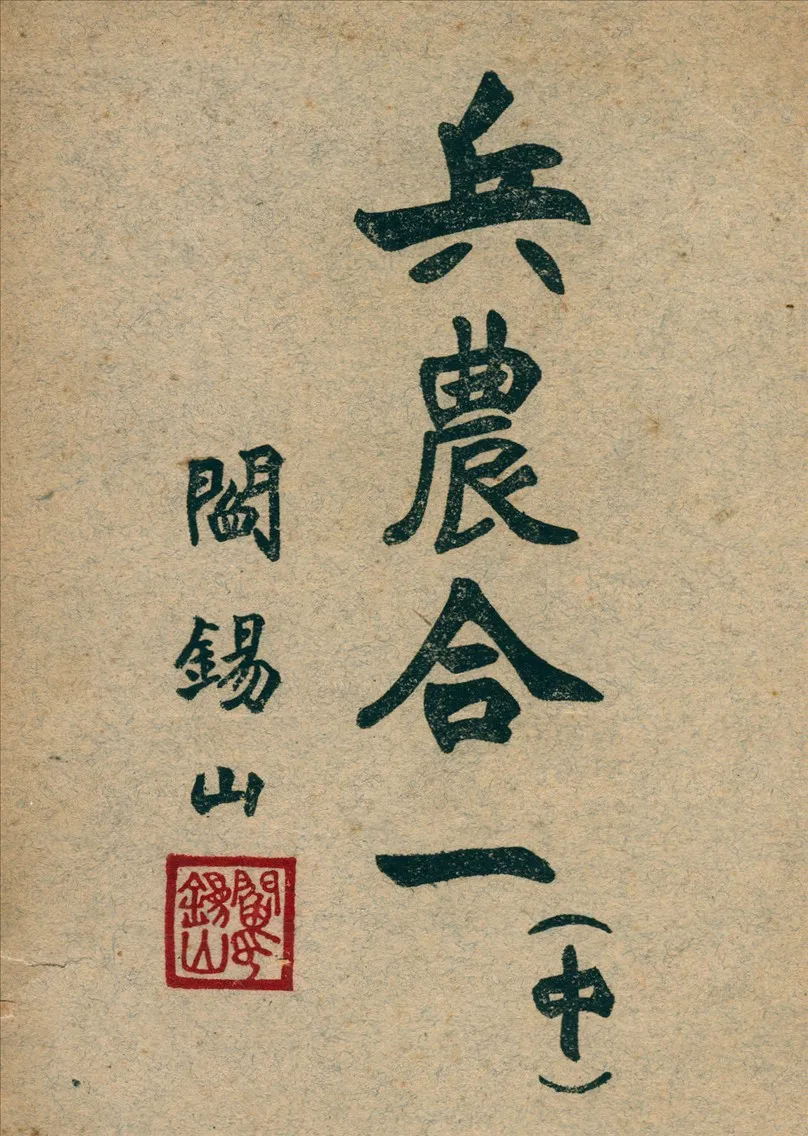 兵農合一
(中)
閻錫山
閻
錫山